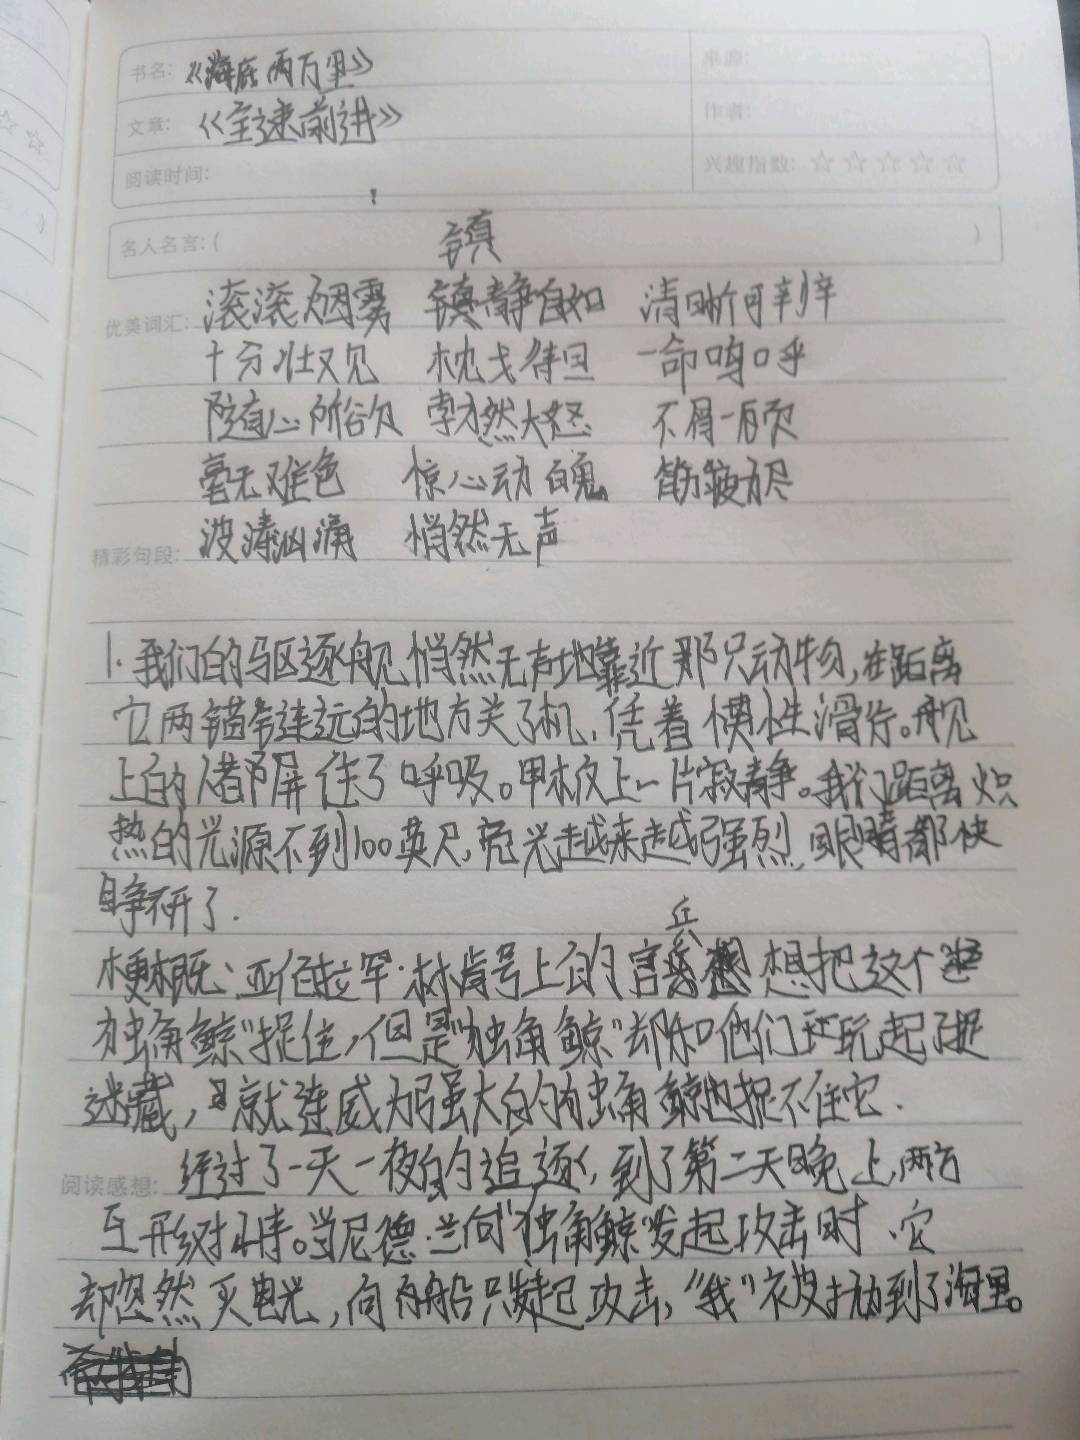 书名: 《海底两万里》
文章: 《全速前进》
阅读时间:
兴趣指数: ☆☆☆☆☆
名人名言: ( 镇 )
滚滚烟雾 镇静自如 清晰可辨
优美词汇:
十分壮观 枕戈待旦 一命呜呼
随心所欲 勃然大怒 不屑一顾
毫无难色 惊心动魄 筋疲力尽
波涛汹涌 悄然无声
精彩句段:
1.我们的驱逐舰悄然无声地靠近那只动物,在距离
它两锚链远的地方关了机,凭着惯性滑行。舰
上的人都屏住了呼吸。甲板上一片寂静。我们距离炽
热的光源不到100英尺,亮光越来越强烈,眼睛都快
睁不开了.
兵
梗概:亚伯拉罕·林肯号上的官 想把这个
独角鲸"捉住,但是"独角鲸"却和他们玩起了捉
迷藏, 就连威力强大的 独角鲸也捉不住它.
经过了一天一夜的追逐,到了第二天晚上,两方
阅读感想:
互形对峙。当尼德·兰向"独角鲸"发起攻击时,它
却忽然灭电光,向船只发起攻击,"我"被抛到了海里。